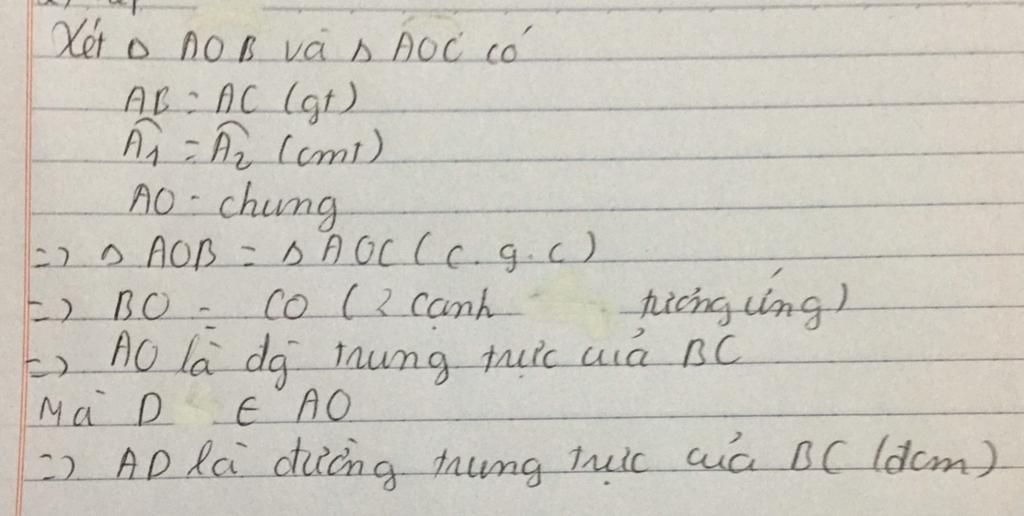 Xét Δ AOB và Δ AOC có
AB = AC (gt)
Â1 = Â2 (cmt)
AO - chung
=> Δ AOB = Δ AOC (c.g.c)
=> BO = CO (2 cạnh tương ứng)
=> AO là đg trung trực của BC
Mà D ∈ AO
=> AD là đường trung trực của BC (đcm)